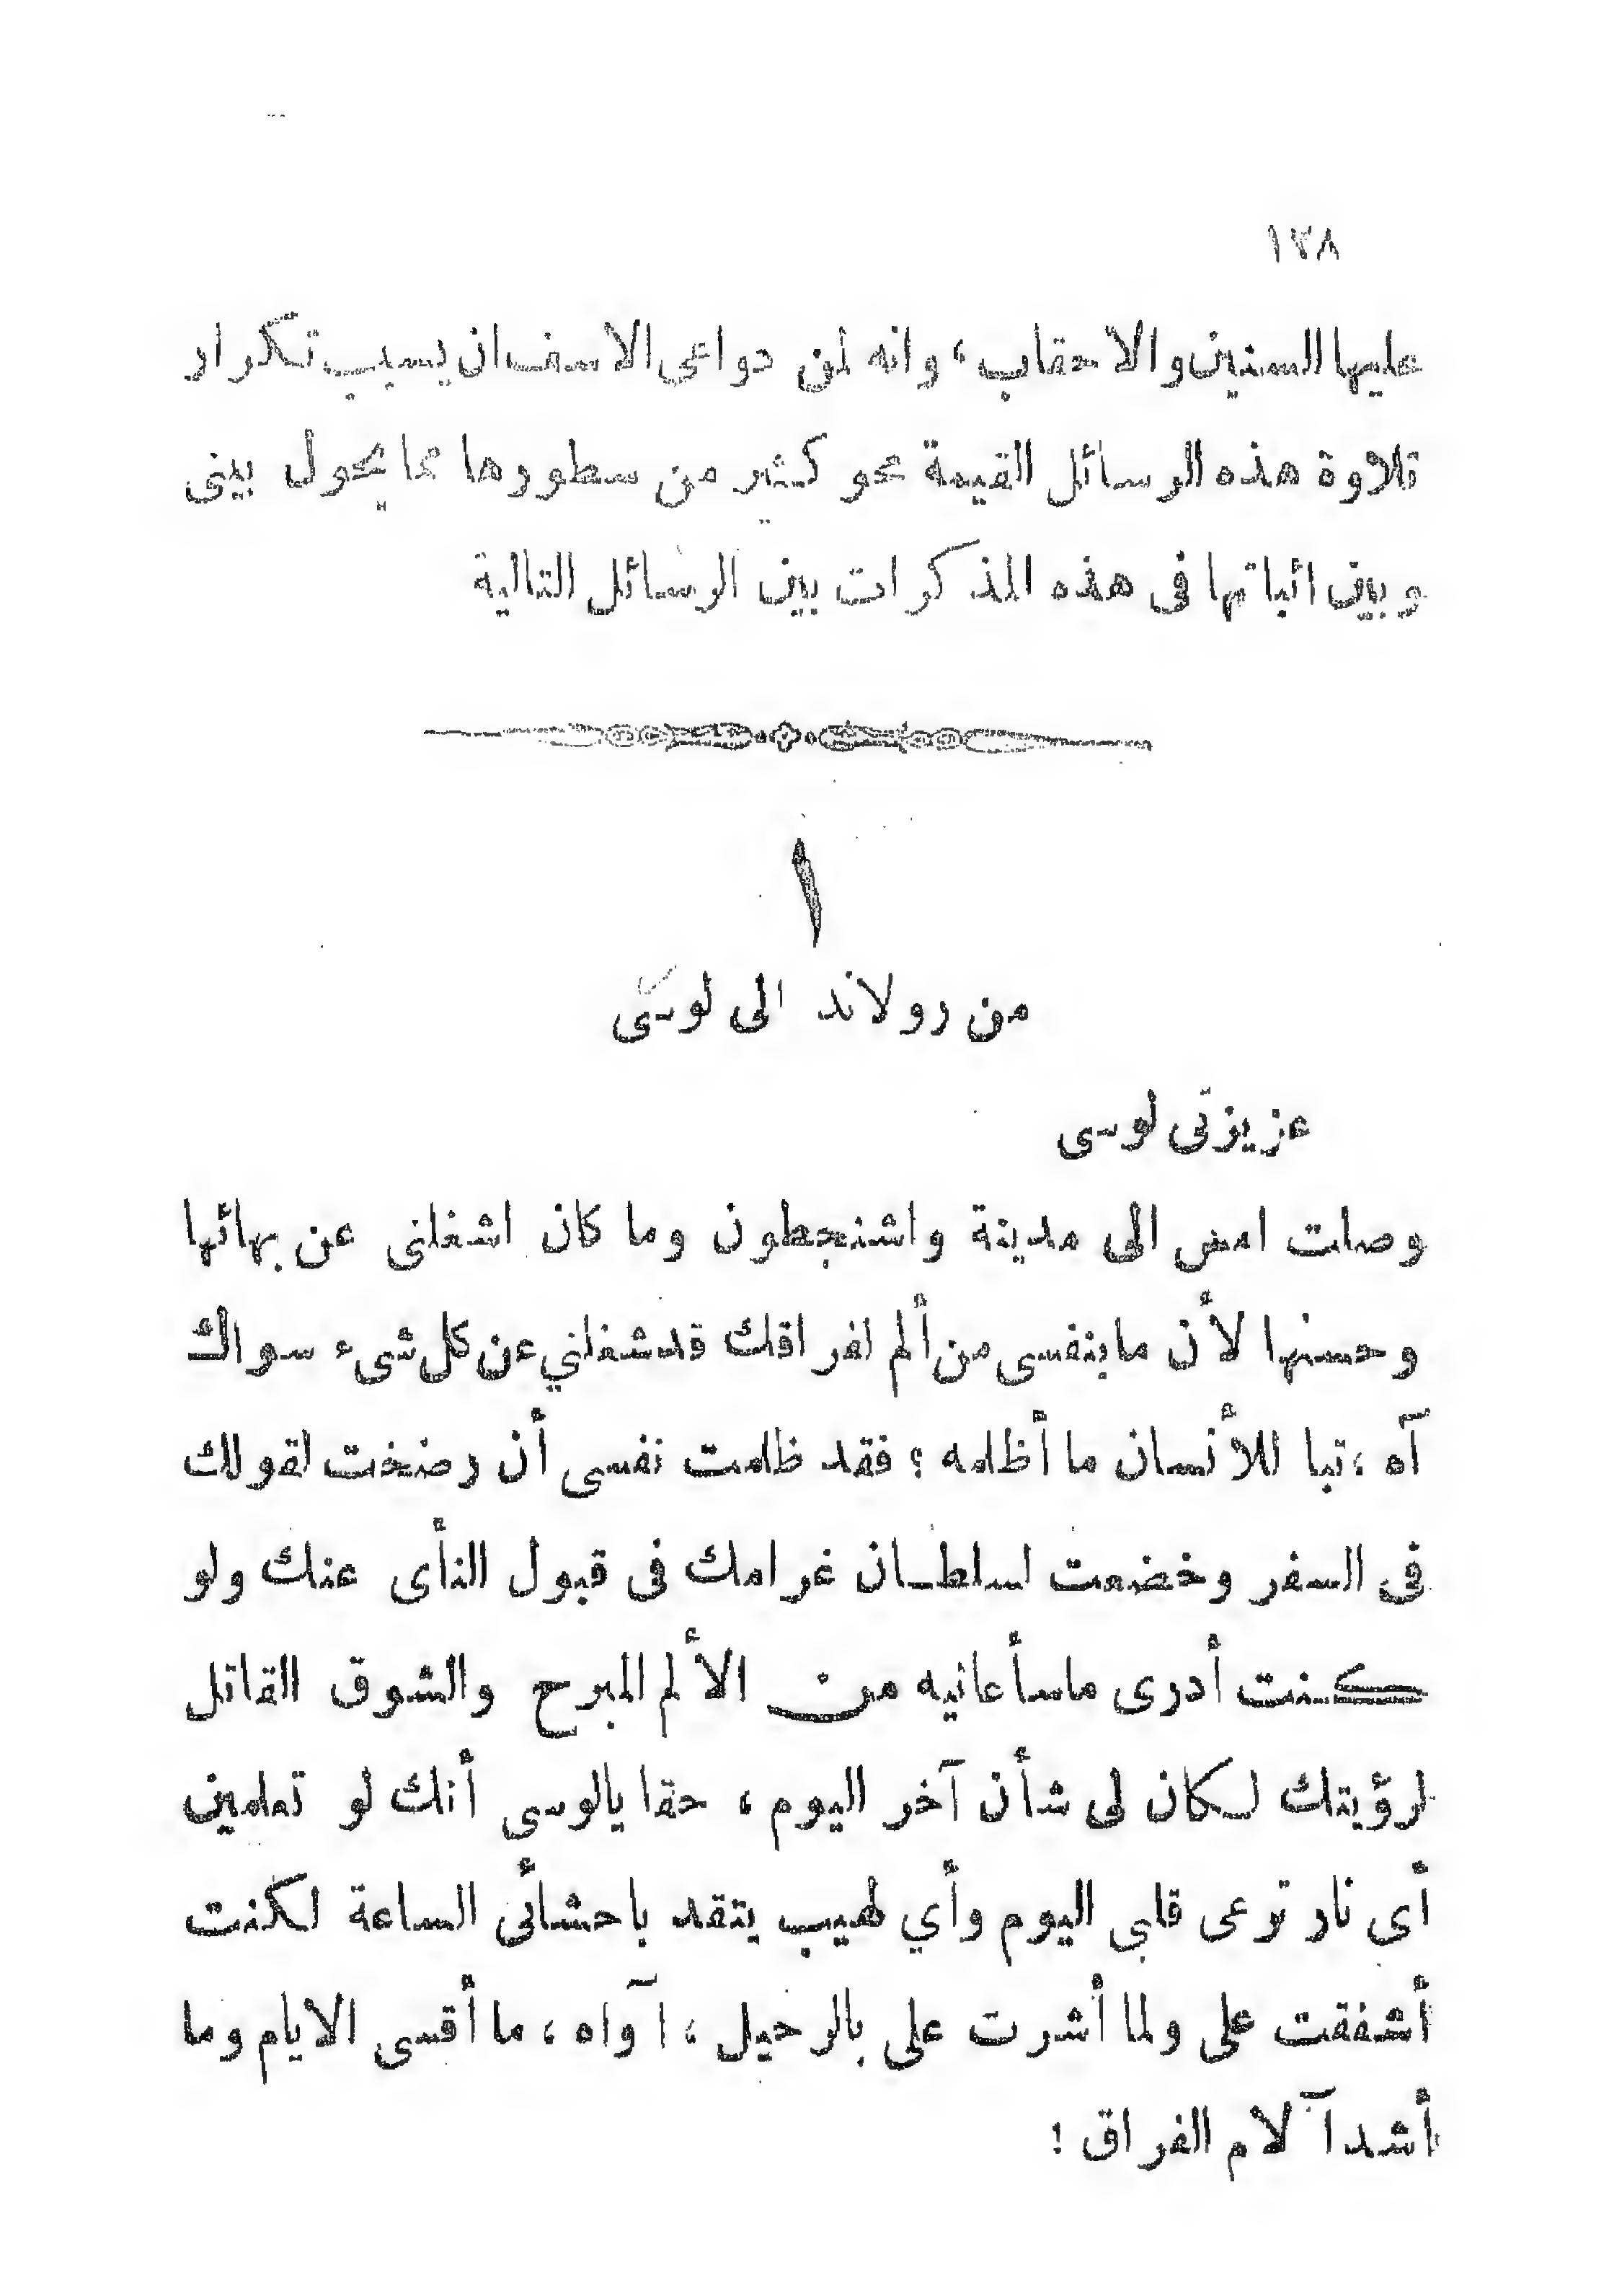 ١٣٨
عليها السنين والاحقاب، وانه لمن دواعى الاسف ان يسبب تكرار
تلاوة هذه الرسائل القيمة محو كثير من سطورها مما يحول بينى
وبين اثباتها فى هذه المذكرات بين الرسائل التالية
١
من رولاند الى لوسى
عزيزتى لوسى
وصلت امس الى مدينة واشنجطون وما كان اشغلنى عن بهائها
وحسنها لأن مابنفسى من ألم لفراقك قد شغلني عن كل شىء سواك
آه ، تبا للأنسان ما أظلمه ؛ فقد ظلمت نفسى أن رضخت لقولك
فى السفر وخضعت لسلطان غرامك فى قبول النأى عنك ولو
كنت أدرى ماسأعانيه من الألم المبرح والشوق القاتل
لرؤيتك لكان لى شأن آخر اليوم ، حقا يالوسى أنك لو تعلمين
أى نار ترعى قلبى اليوم وأي لهيب يتقد باحشأئى الساعة لكنت
أشفقت على ولما أشرت على بالرحيل ، آواه ، ما أقسى الايام وما
أشد آلام الفراق !